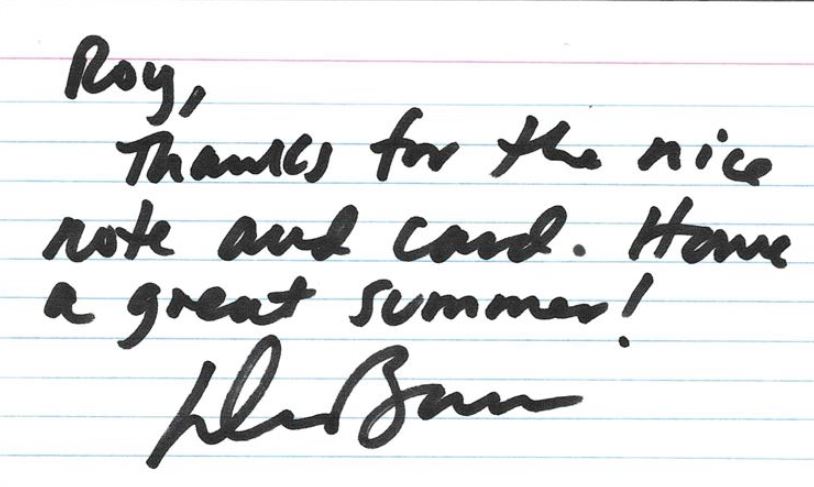 Roy,
Thanks for the nice
note and card. Have
a great summer!